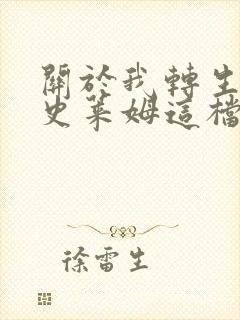 關於我轉生
史萊姆這檔
徐雷生